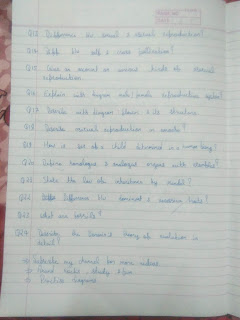 Q13 Difference the sexual & asexual reproduction?
Q14 Diff the self & cross pollination?
Q15 Give an account on various kinds of asexual
reproduction
Q16 Explain with diagram male/female reproductive system?
Q17 Describe with diagram flower & its structure
Q18 Describe asexual reproduction in
Q19 How is sex of a child determined in a human being?
Q20 Define homologous & analogous organs with examples?
Q21 State the law of inheritance by mendel?
Q22 Difference the dominant & recessive traits?
Q23 What are fossils?
Q24 Describe the Darwin's theory of evolution in
detail?
my channel for more videos
Practice diagrams